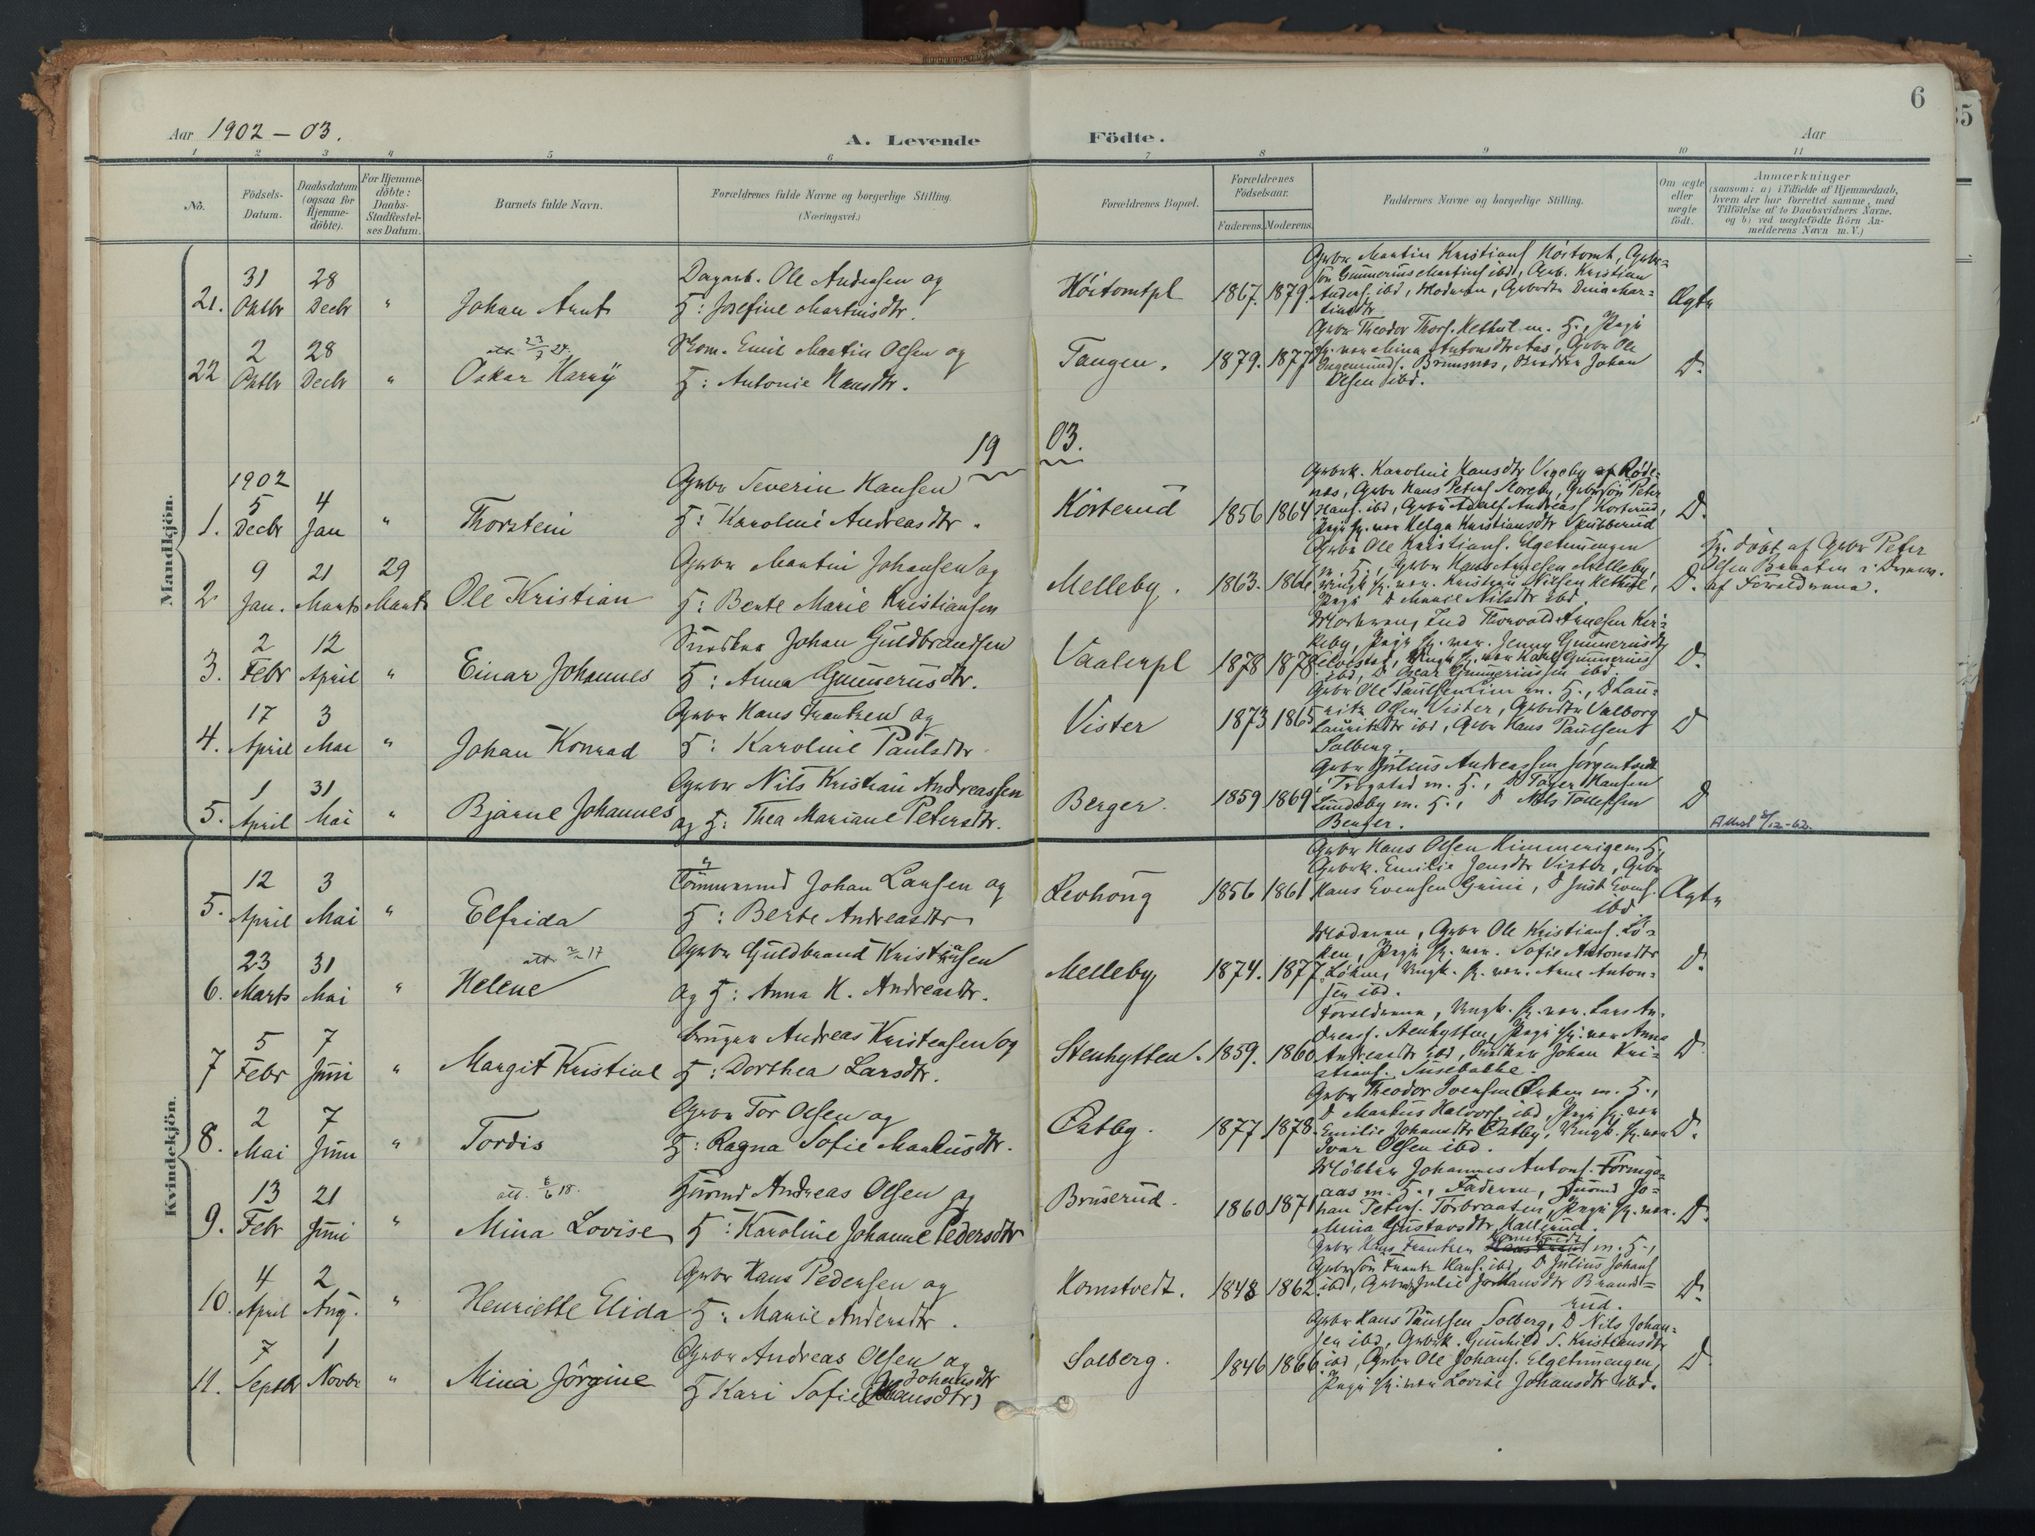 6
Aar 1902 - 03.
A. Levende Födte.
Aar
1 2 3 4 5 6 7 8 9 10 11
No.
Födsels-
Datum.
Daabsdatum
(ogsaa for
Hjemme-
döbte).
For Hjemme-
döbte:
Daabs-
Stadfæstel-
ses Datum.
Barnets fulde Navn.
Forældrenes fulde Navne og borgerlige Stilling.
(Næringsvei.)
Forældrenes Bopæl.
Forældrenes
Födselsaar.
Faderens. Moderens.
Faddernes Navne og borgerlige Stilling.
Om ægte
eller
uægte
födt.
Anmærkninger
(saasom: a) i Tilfælde af Hjemmedaab,
hvem der har forrettet samme, med
Tilföielse af to Daabsvidners Navne,
og b) ved uægtefödte Börn An-
melderens Navn m. V.)
Mandkjön.
21. 31 Oktbr 28 Decbr " Johan Arnt
Dagarb. Ole Andersen og
H: Josefine Martinsdtr.
Höitomtpl 1867. 1879.
Grbr Martin Kristians Höitomt, Grbr-
sön Gunnerius Martins ibd, Arb. Kristian
Anders. ibd, Moderen, Grbrdtr Dina Mar-
tinsdtr.
Ægte
22 2 Oktbr 28 Decbr " Oskar Harry
att. 23/3 24.
Skom. Emil Martin Olsen og
H: Antonie Hansdtr.
Tangen. 1879. 1877
Grbr Theodor Thors. Kethul m. H., Pige
Hj. vær Mina Antonsdtr Aas, Grbr Ole
Brusnæs, Johan
Olsen ibd.
D.
19 03.
1. 1902 5 Decbr 4 Jan " Thorstein
Grbr Severin Hansen
H: Karoline Andreasdtr.
Körterud 1856 1864
Grbrk. Karoline Hansdtr Vigeby af Röde-
næs, Grbr Hans Peters. Noreby, Grbrsön Peter
Hans. ibd, Grbr Adolf Andreas. Körterud,
Pige Hj. vær Helga Kristiansdtr Skubberud
D.
2 9 Jan. 21 Marts 29 Marts Ole Kristian
Grbr Martin Johansen og
H: Berte Marie Kristiansen
Melleby. 1863. 1866
Grbr Ole Kristians. Elgetuuengen
m. H., Grbr Hans Arnesen Melleby,
Ungk. Hj. vær. Kristian Nilsen Kethul,
Pige D Marie Nilsdtr ibd.
D.
Hj. döbt af Grbr Peter
Olsen Braaten i
af Forældrene.
3. 2 Febr 12 April " Einar Johannes
Snedker Johan Guldbrandsen
H: Anna Gunnerusdtr.
Vaalerpl 1878 1878
Moderen, Ind Thorvald Arnesen Kir-
keby, Pige Hj. vær. Jenny Gunnerusdtr
Elvestad, Ungk. Hj. vær Karl Gunnerius
ibd, D Oscar Gunneriussen ibd.
D.
4. 17 April 3 Mai " Johan Konrad
Grbr Hans Frantzen og
H: Karoline Paulsdtr
Vister 1873 1865
Grbr Ole Paulsen Lien m. H., D Lau-
ritz Olsen Vister, Grbrdtr Valborg
Lauritzdtr ibd, Grbr Hans Paulsen
Solberg.
D
5. 1 April 31 Mai " Bjarne Johannes
Grbr Nils Kristian Andreassen
og H: Thea Mariane Petersdtr.
Berger. 1859 1869
Grbr Julius Andreassen
i Trögstad m. H., D Hansen
Lundeby m. H., D Nils Tollefsen
Berger.
D
Attest 8/12-62.
Kvindekjön.
5. 12 April 3 Mai " Elfrida
Tömmermd Johan Larsen og
H: Berte Andreasdtr
Revhoug 1856 1861
Grbr Hans Olsen Kimmerigen m H,
Grbrk. Emilie Jensdtr Vister, Grbr
Hans Evensen Grini, D Just Evens.
ibd
Ægte
6. 23 Marts 31 Mai " Helene
att. 17
Grbr Guldbrand Kristiansen
og H: Anna K. Andreasdtr.
Melleby 1874. 1877
Moderen, Grbr Ole Kristians. Lö-
ken, Pige Hj. vær. Sofie Antonsdtr
Löken, Ungk. Hj. vær. Arne Anton-
sen ibd.
D.
7 5 Febr 7 Juni " Margit Kristine
bruger Andreas Kristensen og
H: Dorthea Larsdtr.
Stenhytten. 1859. 1860
Forældrene, Ungk. Hj. vær. Lars An-
dreas. Stenhytten, Pige Hj. vær Anna
Andreasdtr ibd, Snedker Johan Kri-
stians. Susebakke.
D
8. 2 Mai 7 Juni " Tordis
Grbr Tor Olsen og
H: Ragna Sofie Markusdtr.
Östby. 1877 1878
Grbr Theodor Iversen m. H.,
D Markus Halvors. ibd, Pige Hj. vær
Emilie Johansdtr Östby, Ungk. Hj. vær
Ivar Olsen ibd.
D.
9. 13 Febr 21 Juni " Mina Lovise
att. 8/6 18.
Husmd Andreas Olsen og
H: Karoline Johanne Pedersdtr
Bruserud. 1860 1871
Möller Johannes Antons. Föringa-
aas m. H., Faderen, Husmd Jo-
han Peters. Torbraaten, Pige Hj. vær.
Mina Gustavsdtr Kallerud.
D.
10. 4 April 2 Aug. " Henriette Elida
Grbr Hans Pedersen og
H: Marie Andersdtr.
Komstvedt. 1848 1862
Grbr Hans Frantzen Komstvedt m. H.,
Grbrsön Frantz Hans. ibd, D Julius Johans
ibd, Grbrdtr Julie Johansdtr Brands-
rud.
D.
11. 7 Septbr 1 Novbr " Mina Jörgine
Grbr Andreas Olsen og
H Kari Sofie Johansdtr
Solberg. 1846 1866
Grbr Hans Paulsen Solberg, D Nils Johan-
sen ibd, Grbrk. Gunhild S. Kristiansdtr
ibd, Grbr Ole Johans. Elgetuuengen,
Pige Hj. vær Lovise Johansdtr ibd.
D